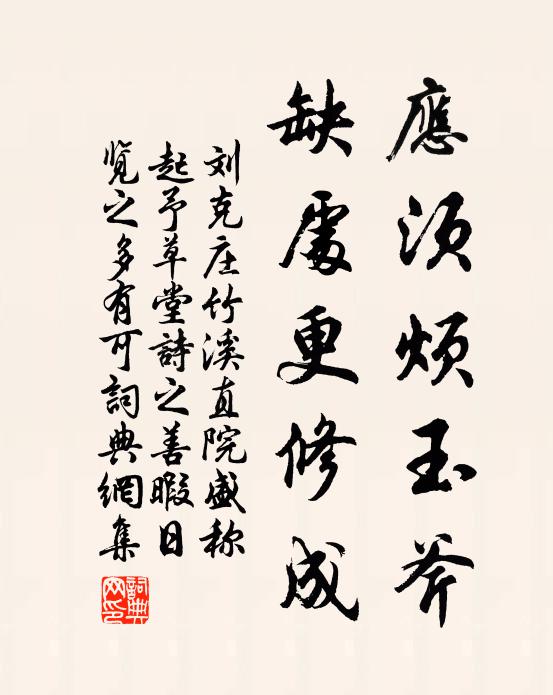 應須煩玉斧
缺處更修成
刘克庄竹溪直院盛称
起予草堂詩之善暇日
覽之多有可詞典網集
詞典
网印